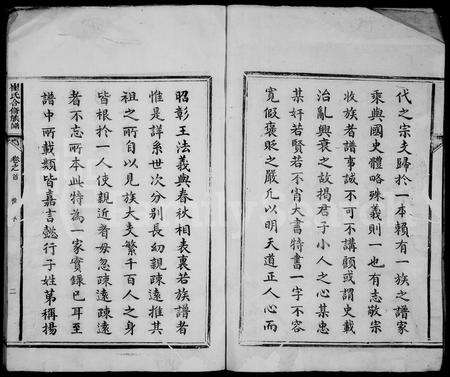 代之宗支歸於一本賴有一族之譜家
乘與國史體略殊義則一也有志敬宗
收族者譜事誠不可不講顧或謂史載
治亂興衰之故揭君子小人之心某忠
某奸若賢若不肖大書特書一字不容
寬假褒貶之嚴凡以明天道正人心而
昭彰王法義與春秋相表裏若族譜者
惟是詳系世次分別長幼親疎遠推其
祖之所自以見族大支繁千百人之身
皆根於一人使親近者毋忽疎遠疎遠
者不忘所本此特為一家實錄已耳至
譜中所載類皆嘉言懿行子姓第稱揚
氏合修族譜
卷之首
二